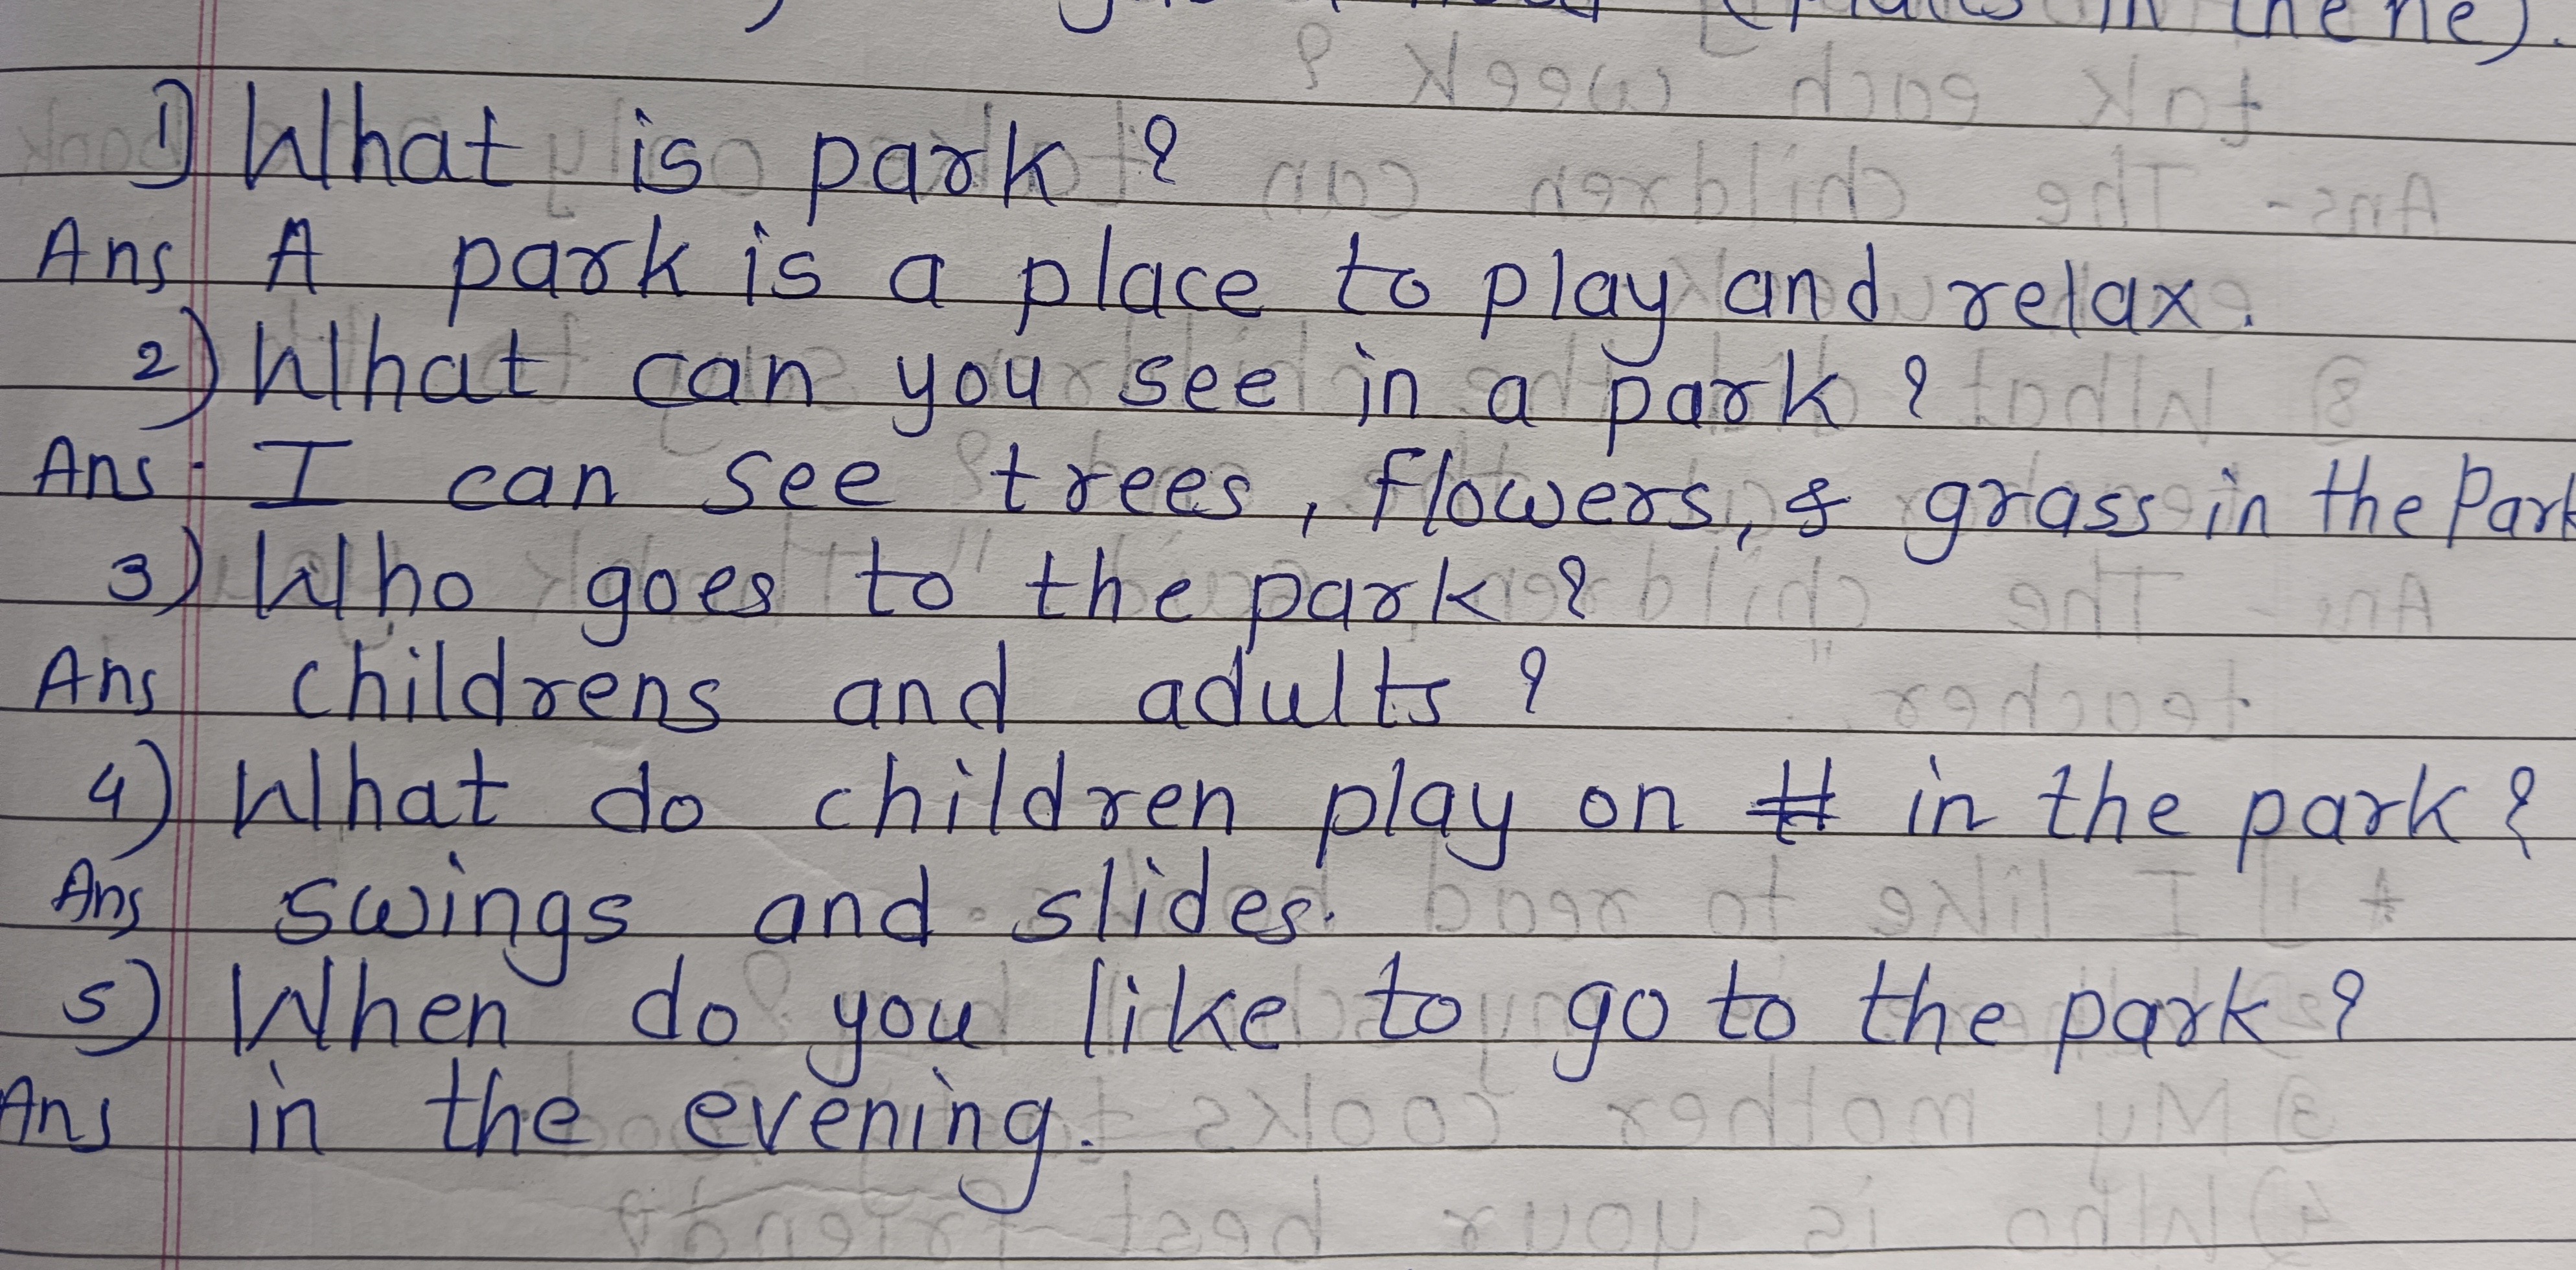 in the ne).
1) What is park ?
Ans A park is a place to play and relax.
2) What can you see in a park ?
Ans. I can see trees, flowers, & grass in the Park
3) Who goes to the park ?
Ans childrens and adults ?
4) What do children play on in the park ?
Ans swings and slides.
5) When do you like to go to the park ?
Ans in the evening.